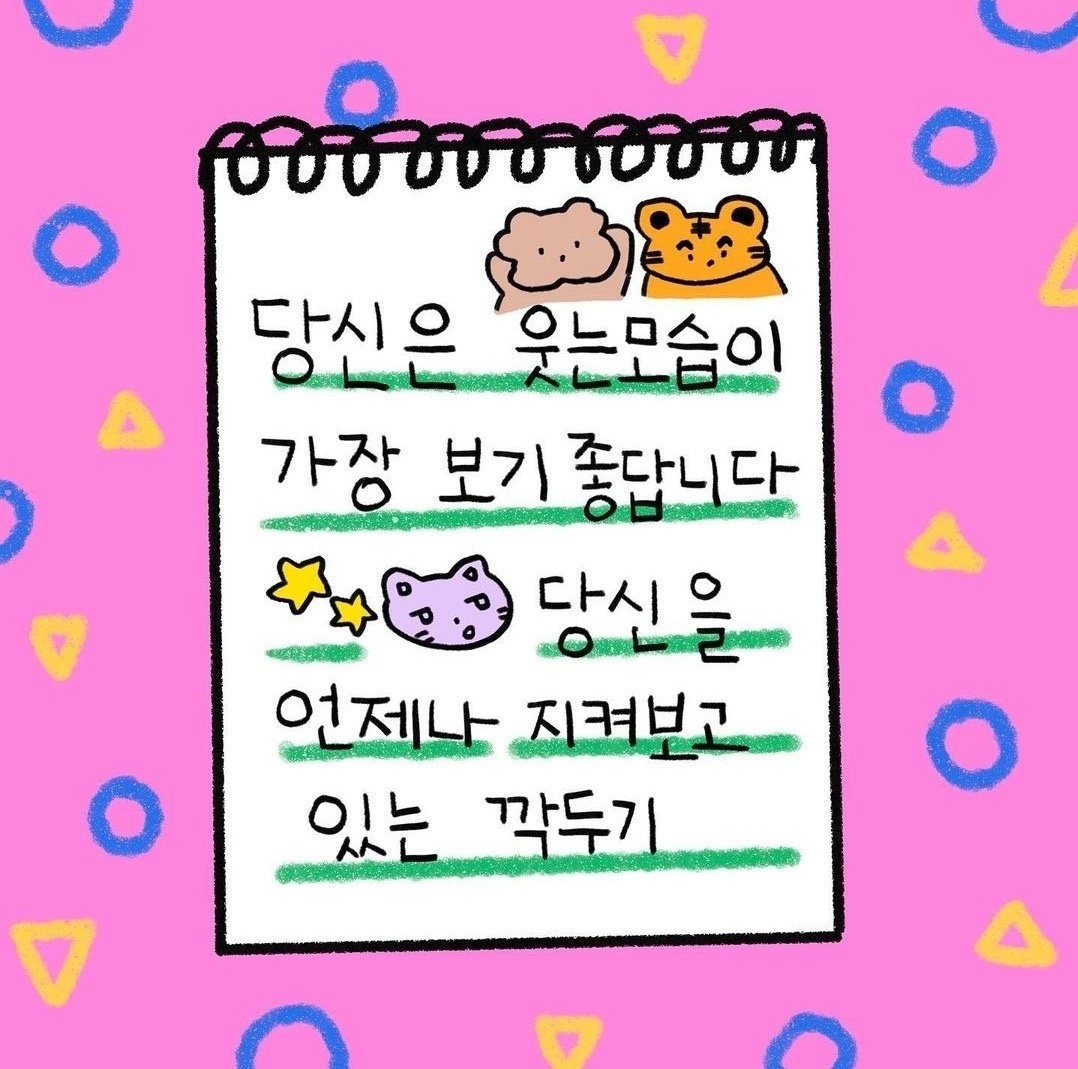 당신은 웃는모습이
가장 보기 좋답니다
당신을
언제나 지켜보고
있는 깍두기